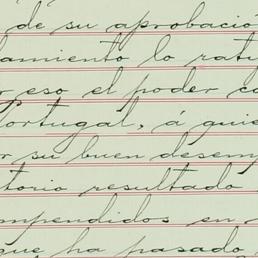 de su aprobació
lamiento lo ratu
r eso el poder co
Portugal, á quie
or su buen desemp
torio resultado
ompendidos en
que ha pasado